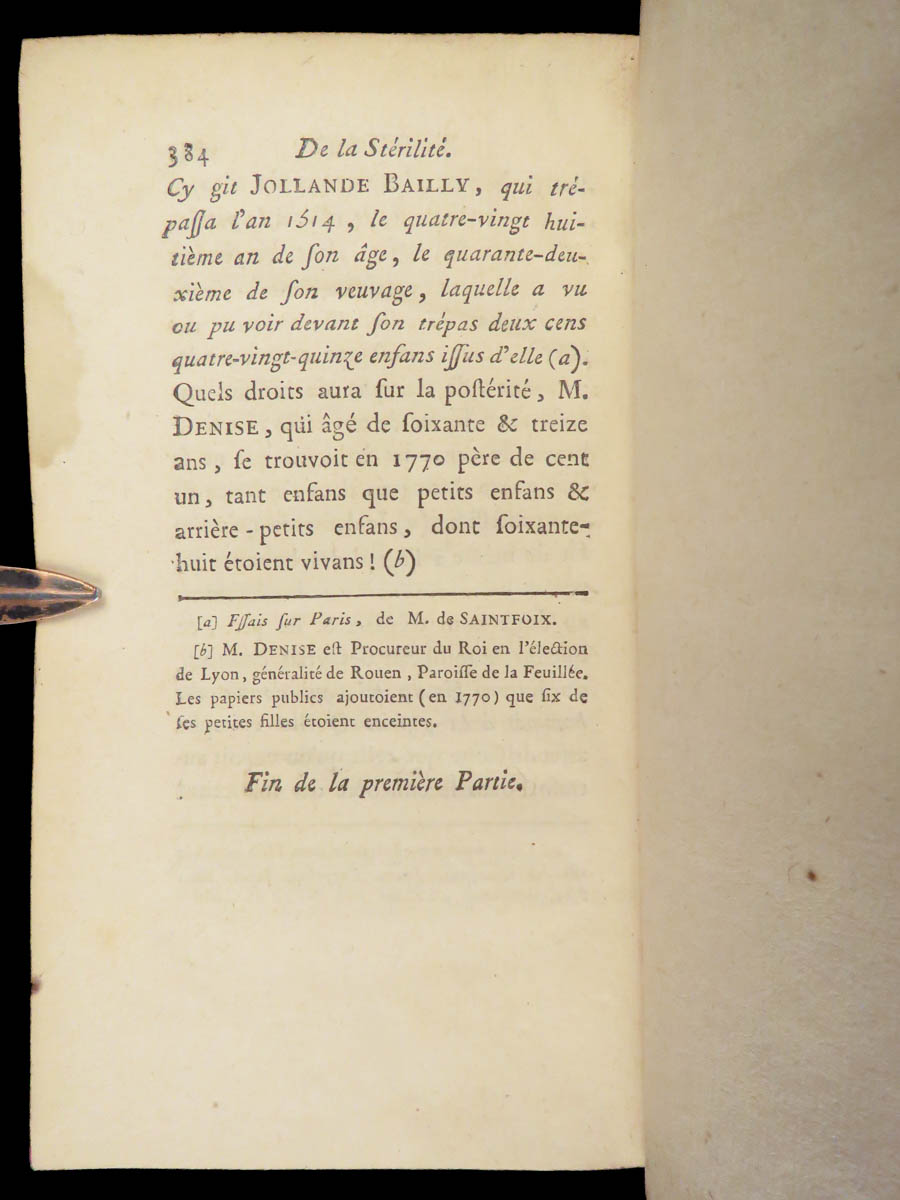 384 De la Stérilité.
Cy git JOLLANDE BAILLY, qui tré-
paſſa l'an 1514, le quatre-vingt hui-
tième an de ſon âge, le quarante-deu-
xième de ſon veuvage, laquelle a vu
ou pu voir devant ſon trépas deux cens
quatre-vingt-quinze enfans iſſus d'elle (a).
Quels droits aura ſur la poſtérité, M.
DENISE, qui âgé de ſoixante & treize
ans, ſe trouvoit en 1770 père de cent
un, tant enfans que petits enfans &
arrière-petits enfans, dont ſoixante-
huit étoient vivans! (b)
[a] Eſſais ſur Paris, de M. de SAINTFOIX.
[b] M. DENISE eſt Procureur du Roi en l'élection
de Lyon, généralité de Rouen, Paroiſſe de la Feuillée.
Les papiers publics ajoutoient (en 1770) que ſix de
ſes petites filles étoient enceintes.
Fin de la première Partie.